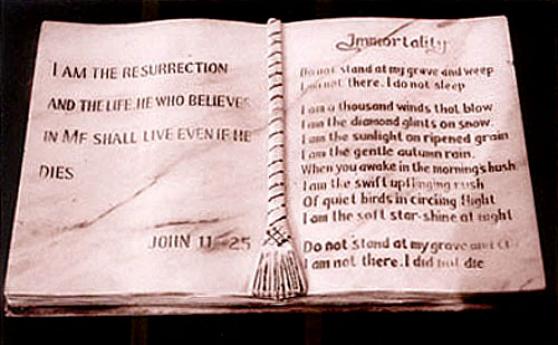 I AM THE RESURRECTION
AND THE LIFE. HE WHO BELIEVES
IN ME SHALL LIVE EVEN IF HE
DIES
JOHN 11-25
Immortality
Do not stand at my grave and weep
I am not there. I do not sleep
I am a thousand winds that blow
I am the diamond glints on snow.
I am the sunlight on ripened grain
I am the gentle autumn rain.
When you awake in the morning's hush
I am the swift uplifting rush
Of quiet birds in circling flight
I am the soft star-shine at night
Do not stand at my grave and
I am not there. I did not die